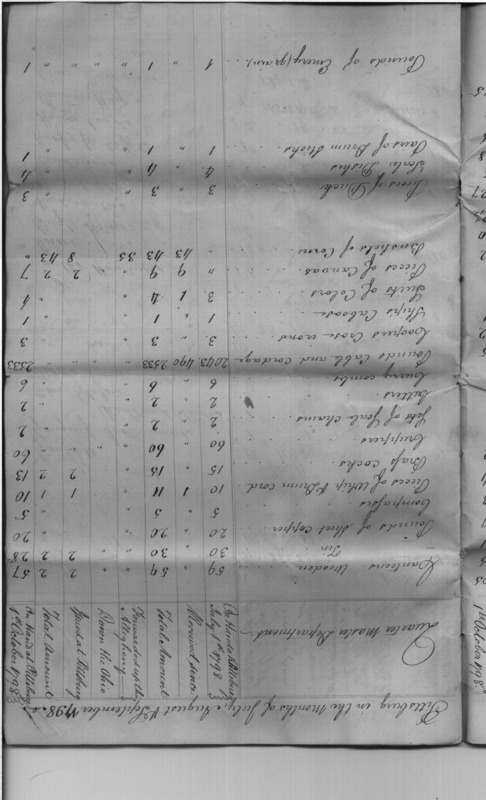 Pittsburg in the Months of July, August & September 1798.
Quarter Master Department
On Hand at Pittsburg July 1st 1798
Received since
Total Amount
Forwarded up the Allegheny
Down the Ohio
Used at Pittsburg
Total Amount
On Hand at Pittsburg 1st October 1798
Canteens Wooden 59 " 59 " " 2 2 57
Tin 30 " 30 " " 2 2 28
Pounds of Sheet Copper 20 " 20 " " " " 20
Compasses 5 " 5 " " " " 5
Pieces of Whip & Drum cord 10 1 11 " " 1 1 10
Brass Cocks 15 " 15 " " 2 2 13
Cruppers 60 " 60 " " " " 60
Sets of Scale Chains 2 " 2 " " " " 2
Cutters 2 " 2 " " " " 2
Curry combs 6 " 6 " " " " 6
Pounds Cable and Cordage 2043 490 2533 " " " " 2533
Coopers Cross irons 3 " 3 " " " " 3
Ships Caboose 1 " 1 " " " " 1
Suits of Colors 3 1 4 " " " " 4
Pieces of Canvas " 9 9 " " 2 2 7
Bushels of Corn " 43 43 35 " 8 43 "
Pieces of Duck 3 " 3 " " " " 3
Scale Dishes 4 " 4 " " " " 4
Pairs of Drum sticks 1 " 1 " " " " 1
Pounds of Emery (grain) 1 " 1 " " " " 1
1st October 1798